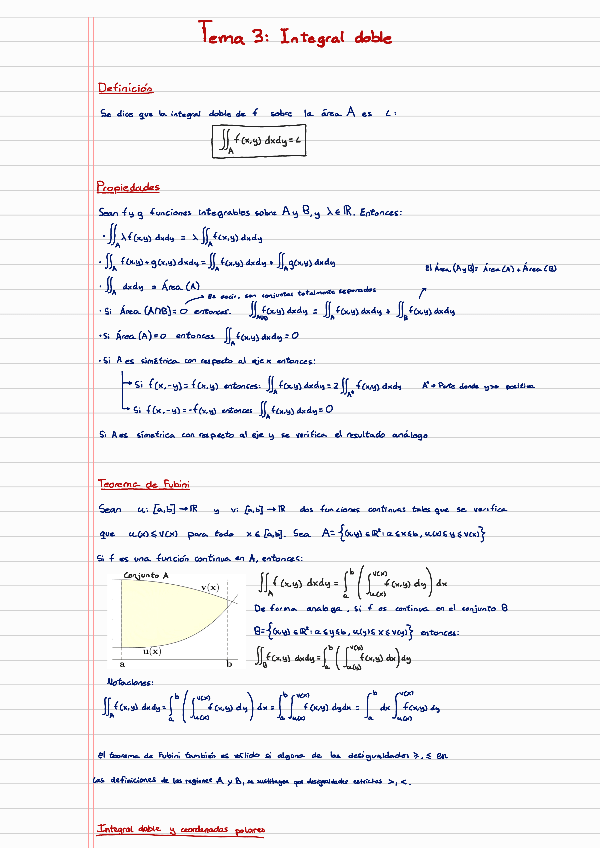 Tema 3: Integral doble
Definición
Se dice que la integral doble de f sobre la área A es L:
∬_A f(x,y) dxdy = L
Propiedades
Sean f y g funciones integrables sobre A y B, y λ ∈ ℝ. Entonces:
· ∬_A λf(x,y) dxdy = λ ∬_A f(x,y) dxdy
· ∬_A f(x,y) + g(x,y) dxdy = ∬_A f(x,y) dxdy + ∬_A g(x,y) dxdy
El Área (A y B) = Área (A) + Área (B)
· ∬_A dxdy = Área (A)
→ Es decir, son conjuntos totalmente separados
· Si Área (A∩B) = 0 entonces. ∬_{A∪B} f(x,y) dxdy = ∬_A f(x,y) dxdy + ∬_B f(x,y) dxdy
· Si Área (A) = 0 entonces ∬_A f(x,y) dxdy = 0
· Si A es simétrica con respecto al eje x entonces:
→ Si f(x,-y) = f(x,y) entonces: ∬_A f(x,y) dxdy = 2 ∬_{A⁺} f(x,y) dxdy A⁺→ Parte donde y es positiva
→ Si f(x,-y) = -f(x,y) entonces ∬_A f(x,y) dxdy = 0
Si A es simetrica con respecto al eje y se verifica el resultado análogo
Teorema de Fubini
Sean u: [a,b] → ℝ y v: [a,b] → ℝ dos funciones continuas tales que se verifica
que u(x) ≤ v(x) para todo x ∈ [a,b]. Sea A = {(x,y) ∈ ℝ²: a ≤ x ≤ b, u(x) ≤ y ≤ v(x)}
Si f es una función continua en A, entonces:
Conjunto A
v(x)
u(x)
a b
∬_A f(x,y) dxdy = ∫_a^b (∫_{u(x)}^{v(x)} f(x,y) dy) dx
De forma analoga, si f es continua en el conjunto B
B = {(x,y) ∈ ℝ²: a ≤ y ≤ b, u(y) ≤ x ≤ v(y)} entonces:
∬_B f(x,y) dxdy = ∫_a^b (∫_{u(y)}^{v(y)} f(x,y) dx) dy
Notaciones:
∬_A f(x,y) dxdy = ∫_a^b (∫_{u(x)}^{v(x)} f(x,y) dy) dx = ∫_a^b ∫_{u(x)}^{v(x)} f(x,y) dydx = ∫_a^b dx ∫_{u(x)}^{v(x)} f(x,y) dy
El teorema de Fubini también es válido si alguna de las desigualdades ≥, ≤ en
las definiciones de las regiones A y B, se sustituyen por desigualdades estrictas >, <.
Integral doble y coordenadas polares